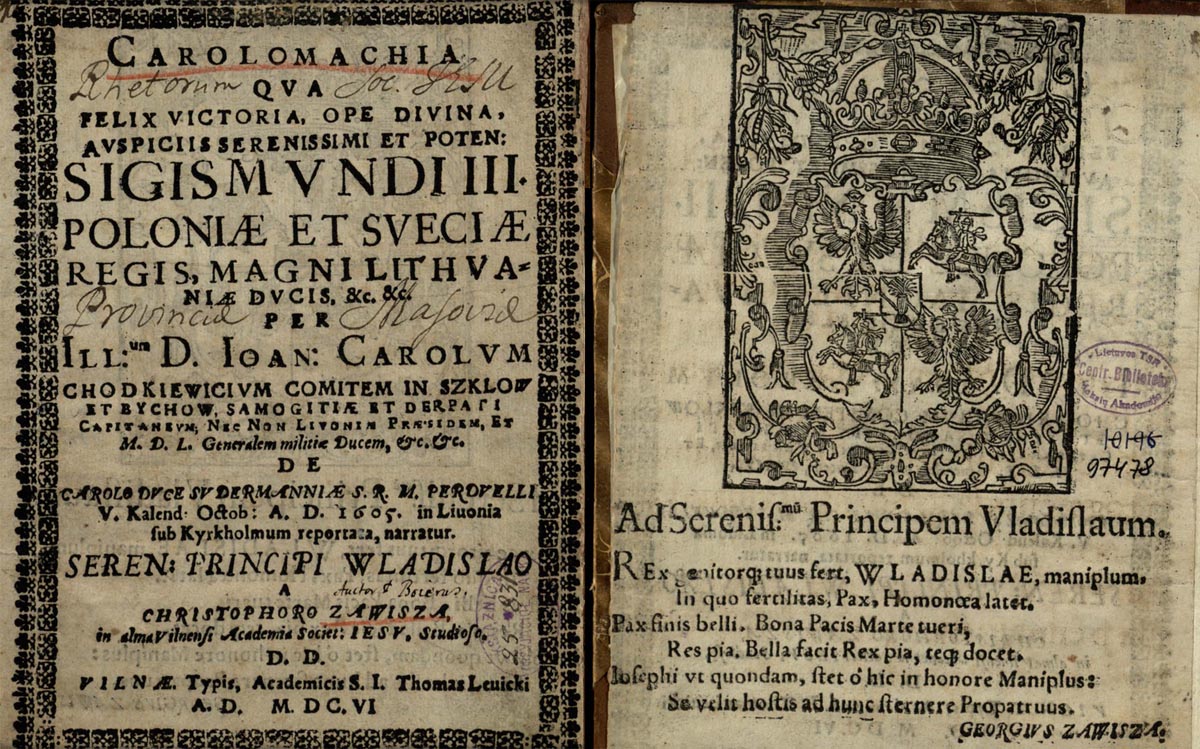 CAROLOMACHIA
Rhetorum QVA Soc. Jesu
FELIX VICTORIA, OPE DIVINA,
AVSPICIIS SERENISSIMI ET POTEN:
SIGISMVNDI III.
POLONIÆ ET SVECIÆ
REGIS, MAGNI LITHVA=
NIÆ DVCIS, &c. &c.
Provinciæ PER Masoviæ
ILL:um D. IOAN: CAROLVM
CHODKIEWICIVM COMITEM IN SZKLOW
ET BYCHOW, SAMOGITIÆ ET DERPATI
CAPITANEVM, NEC NON LIVONIÆ PRÆSIDEM, ET
M. D. L. Generalem militiæ Ducem, &c. &c.
DE
CAROLO DVCE SVDERMANNIÆ S. R. M. PERDVELLI
V. Kalend. Octob: A. D. 1605. in Liuonia
sub Kyrkholmum reportata, narratur.
SEREN: PRINCIPI WLADISLAO
A
CHRISTOPHORO ZAWISZA,
in alma Vilnensi Academia Societ: IESV, Studioso.
D. D.
VILNÆ. Typis, Academicis S. I. Thomas Leuicki
A. D. M. DC. VI
Lietuvos TSR
Centr. Biblioteka
Mokslų Akademijos
10196
97478
Ad Sereniſ:mũ Principem Vladiſlaum.
REx genitorq; tuus fert, WLADISLAE, maniplum,
In quo fertilitas, Pax, Homonœa latet.
Pax finis belli. Bona Pacis Marte tueri,
Res pia. Bella facit Rex pia, teq; docet.
Ioſephi vt quondam, ſtet ô hic in honore Maniplus:
Se velit hoſtis ad hunc ſternere Propatruus.
GEORGIVS ZAWISZA.